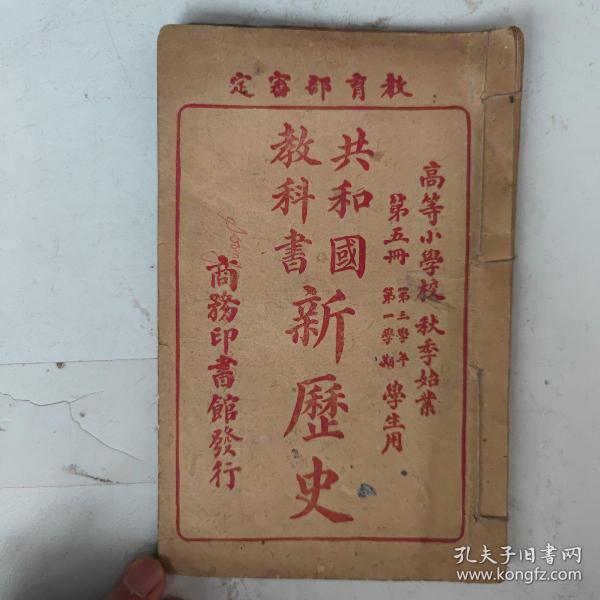 教育部審定
高等小學校 秋季始業
第五冊 第三學年 第一學期 學生用
共和國
教科書
新歷史
商務印書館發行
孔夫子旧书网
www.kongfz.com